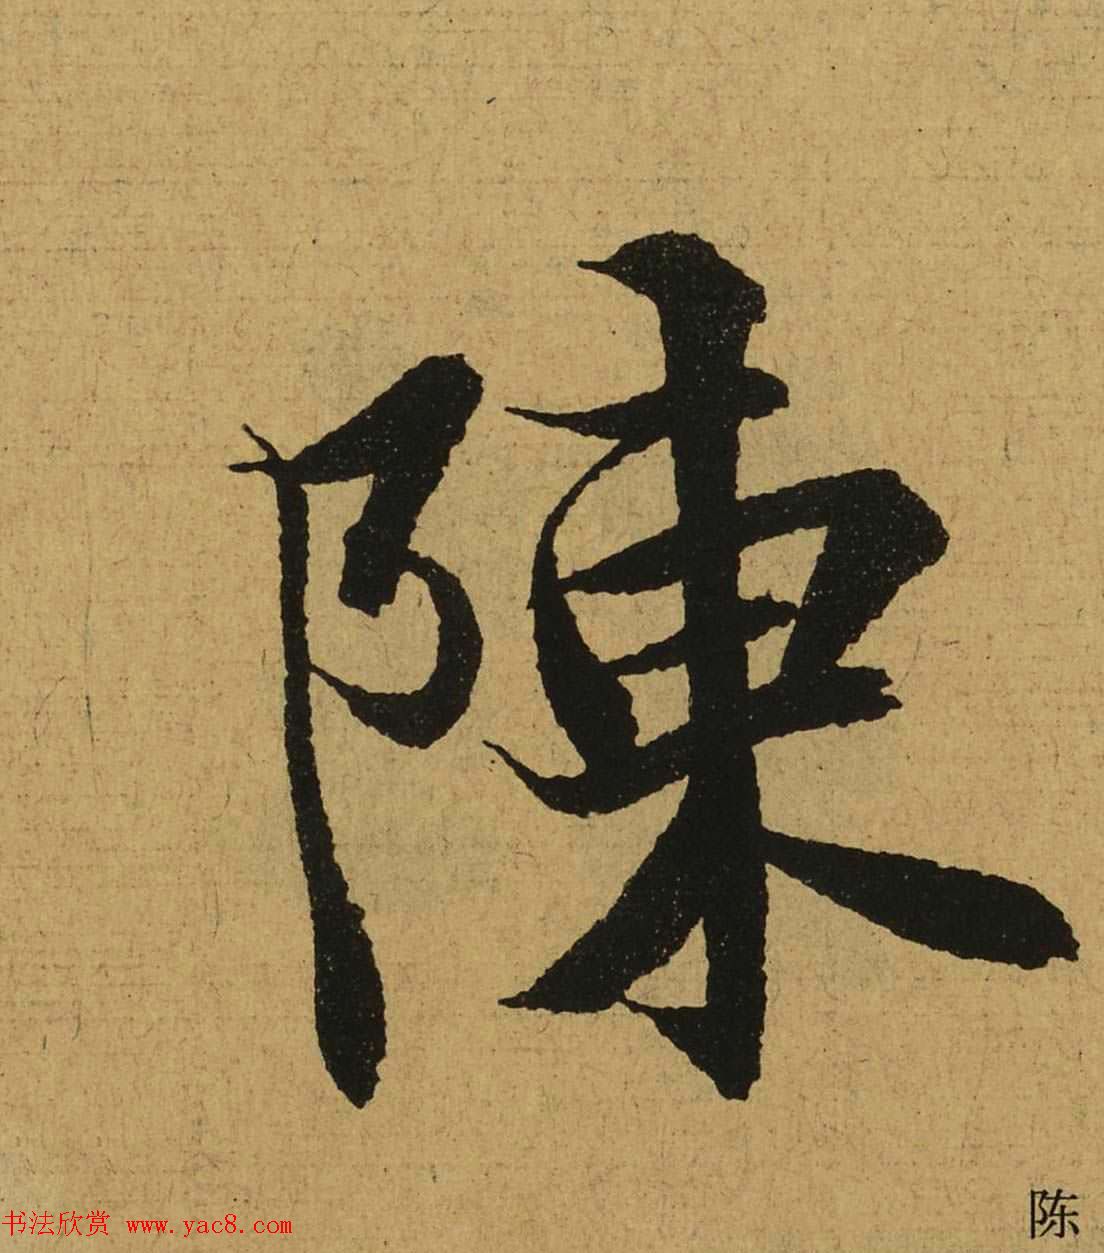 陳
陈
书法欣赏 www.yac8.com